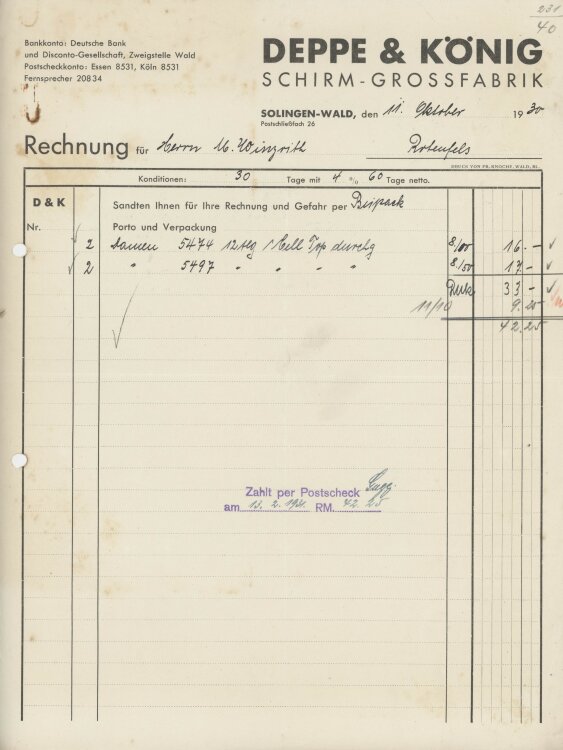 231
40
Bankkonto: Deutsche Bank
und Disconto-Gesellschaft, Zweigstelle Wald
Postscheckkonto: Essen 8531, Köln 8531
Fernsprecher 20834
DEPPE & KÖNIG
SCHIRM-GROSSFABRIK
SOLINGEN-WALD, den 11. Oktober 1930
Postschließfach 26
Rechnung für Herrn M. Winzrith Rotenfels
DRUCK VON FR. KNOCHE, WALD, RL.
Konditionen: 30 Tage mit 4 % 60 Tage netto.
D & K
Sandten Ihnen für Ihre Rechnung und Gefahr per Beipack
Nr. Porto und Verpackung
2 Damen 5474 12tlg / Cell Top durchg 8/00 16.-
2 " 5497 " " " " 8/50 17.-
33-
11/10 9.25
42.25
Zahlt per Postscheck
am 13. 2. 1931. RM. 42.25